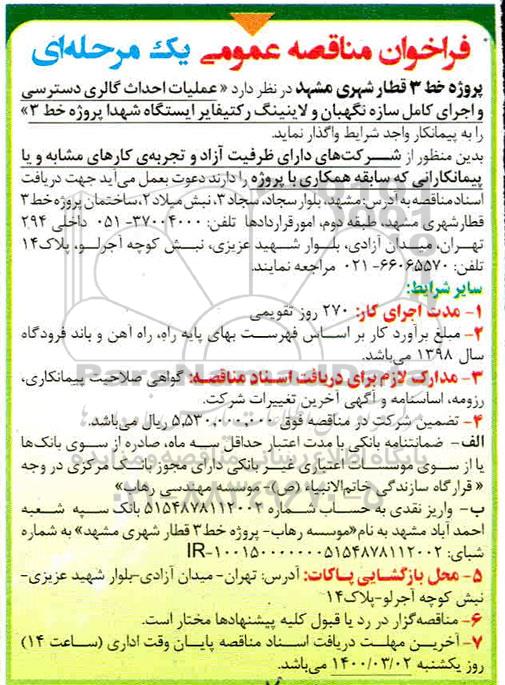 فراخوان مناقصه عمومی یک مرحله‌ای
پروژه خط ۳ قطار شهری مشهد در نظر دارد «عملیات احداث گالری دسترسی
و اجرای کامل سازه نگهبان و لاینینگ رکتیفایر ایستگاه شهدا پروژه خط ۳»
را به پیمانکار واجد شرایط واگذار نماید.
بدین منظور از شرکت‌های دارای ظرفیت آزاد و تجربه‌ی کارهای مشابه و یا
پیمانکارانی که سابقه همکاری با پروژه را دارند دعوت بعمل می‌آید جهت دریافت
اسناد مناقصه به آدرس: مشهد، بلوار سجاد، سجاد ۳، نبش میلاد ۲، ساختمان پروژه خط ۳
قطار شهری مشهد، طبقه دوم، امور قراردادها تلفن: ۳۷۰۰۴۰۰۰-۰۵۱ داخلی ۲۹۴
تهران، میدان آزادی، بلوار شهید عزیزی، نبش کوچه آجرلو، پلاک۱۴
تلفن: ۶۶۰۶۵۵۷۰-۰۲۱ مراجعه نمایند.
سایر شرایط:
۱- مدت اجرای کار: ۲۷۰ روز تقویمی
۲- مبلغ برآورد کار بر اساس فهرست بهای پایه راه، راه آهن و باند فرودگاه
سال ۱۳۹۸ می‌باشد.
۳- مدارک لازم برای دریافت اسناد مناقصه: گواهی صلاحیت پیمانکاری،
رزومه، اساسنامه و آگهی آخرین تغییرات شرکت.
۴- تضمین شرکت در مناقصه فوق ۵,۵۳۰,۰۰۰,۰۰۰ ریال می‌باشد.
الف- ضمانتنامه بانکی با مدت اعتبار حداقل سه ماه، صادره از سوی بانک‌ها
یا از سوی موسسات اعتباری غیر بانکی دارای مجوز بانک مرکزی در وجه
« قرارگاه سازندگی خاتم‌الانبیاء (ص)- موسسه مهندسی رهاب»
ب- واریز نقدی به حساب شماره ۵۱۵۴۸۷۸۱۱۲۰۰۲ بانک سپه شعبه
احمد آباد مشهد به نام «موسسه رهاب- پروژه خط۳ قطار شهری مشهد» به شماره
شبای: IR-۱۰۰۱۵۰۰۰۰۰۰۰۵۱۵۴۸۷۸۱۱۲۰۰۲
۵- محل بازگشایی پاکات: آدرس: تهران- میدان آزادی-بلوار شهید عزیزی-
نبش کوچه آجرلو-پلاک۱۴
۶- مناقصه‌گزار در رد یا قبول کلیه پیشنهادها مختار است.
۷- آخرین مهلت دریافت اسناد مناقصه پایان وقت اداری (ساعت ۱۴)
روز یکشنبه ۱۴۰۰/۰۳/۰۲ می‌باشد.
ParsNamadData
پایگاه اطلاع رسانی مناقصه و مزایده
۰۲۱-۸۸۳۴۹۶۷۰-۵